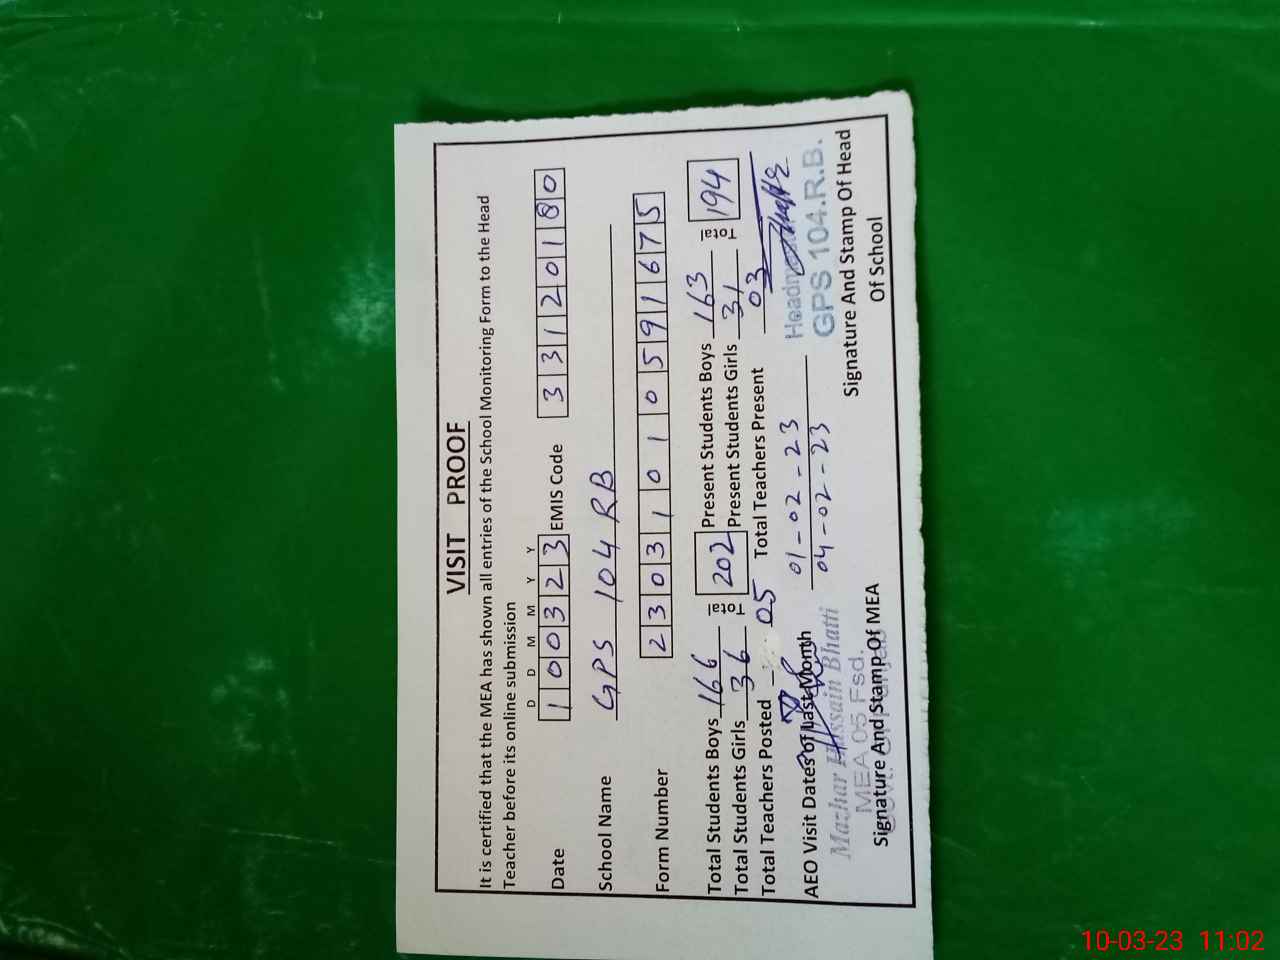 VISIT PROOF
It is certified that the MEA has shown all entries of the School Monitoring Form to the Head
Teacher before its online submission
D D M M Y Y
Date 100323 EMIS Code 33120180
School Name GPS 104 RB
Form Number 23031010591675
Total Students Boys 166 Total 202 Present Students Boys 163 Total 194
Total Students Girls 36 Present Students Girls 31
Total Teachers Posted 05 Total Teachers Present 03
AEO Visit Dates of Last Month 01-02-23
04-02-23
Mazhar Hussain Bhatti
MEA 05 Fsd.
GPS 104.R.B.
Signature And Stamp Of MEA
Signature And Stamp Of Head
Of School
10-03-23 11:02